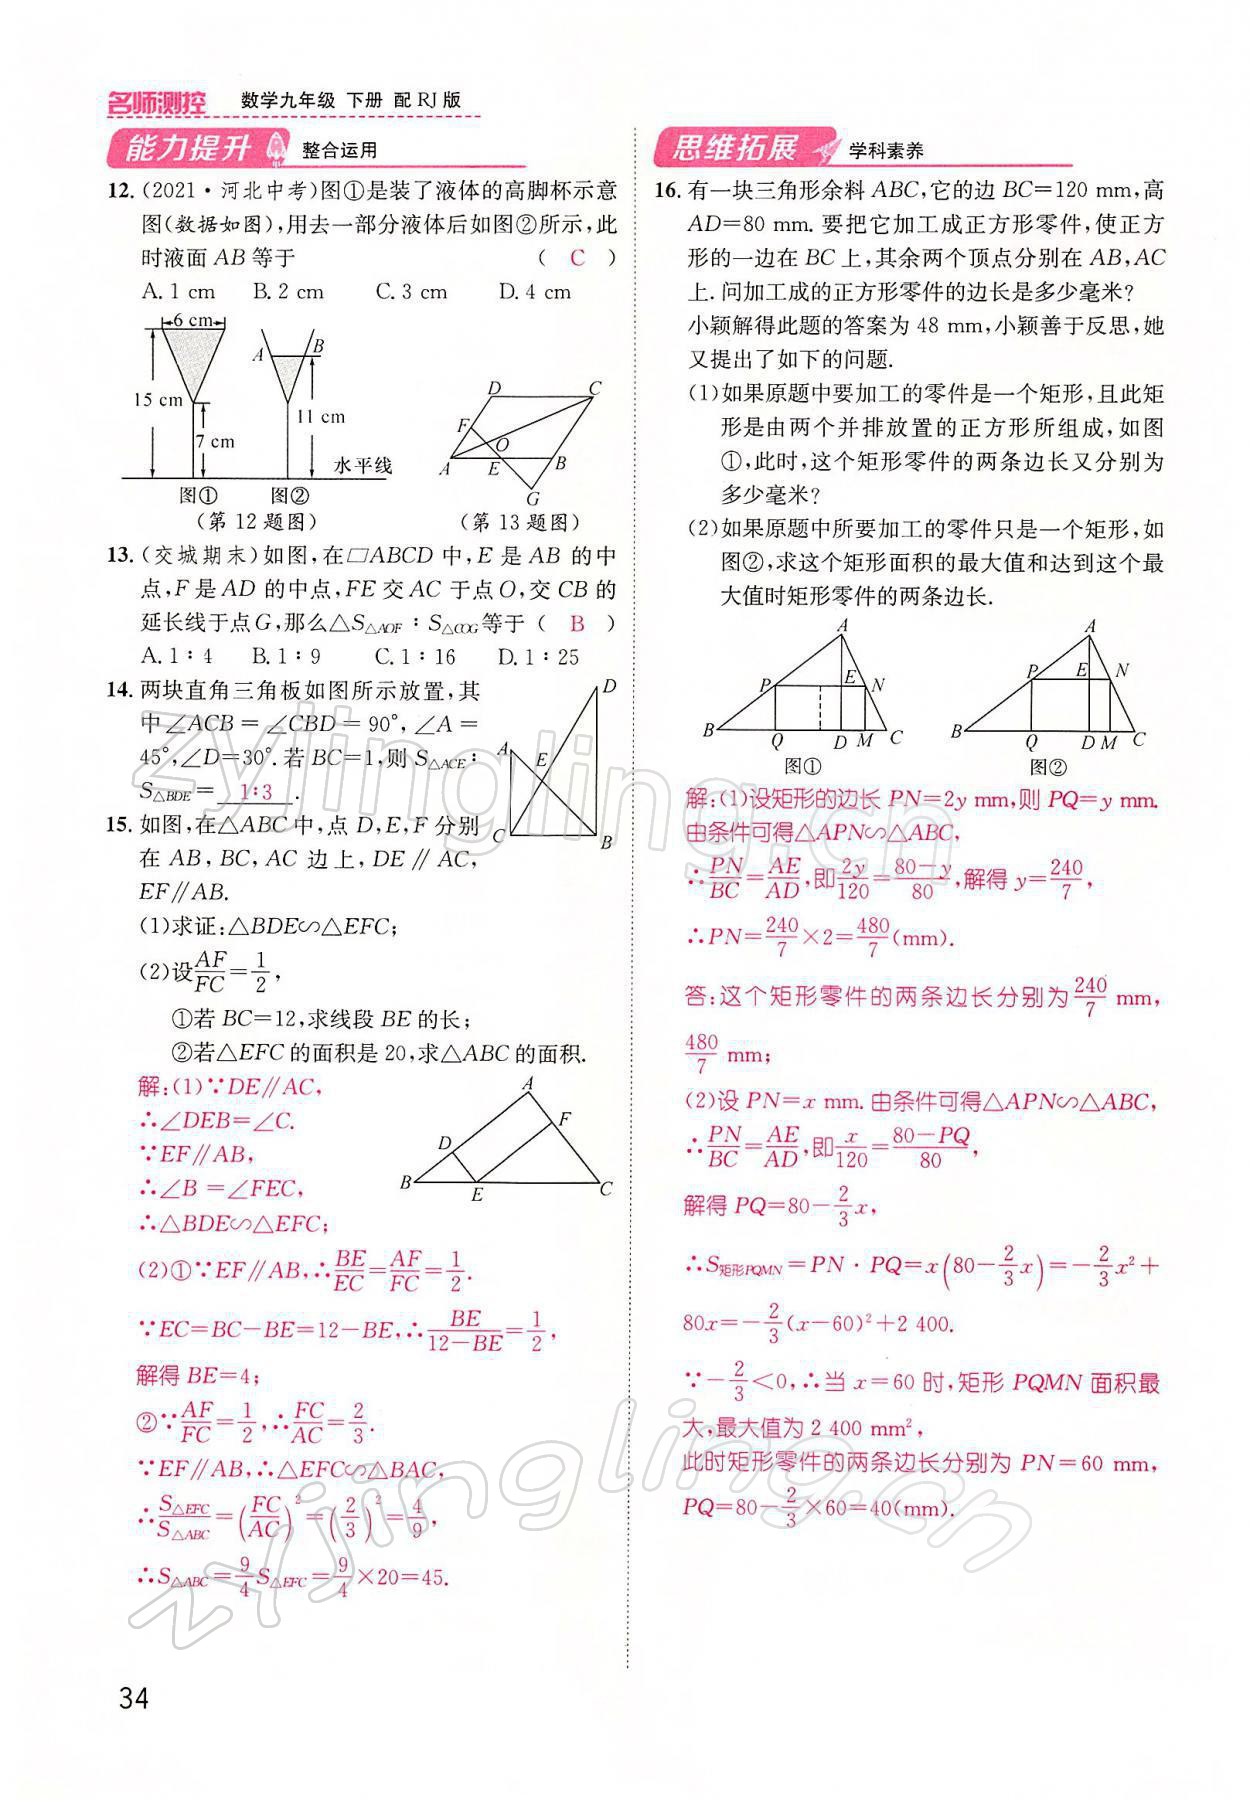 名师测控 数学九年级 下册 配RJ版
能力提升 整合运用
12. (2021·河北中考)图①是装了液体的高脚杯示意
图(数据如图),用去一部分液体后如图②所示,此
时液面AB等于 ( C )
A. 1 cm B. 2 cm C. 3 cm D. 4 cm
6 cm
15 cm
7 cm
A B
11 cm
水平线
图① 图②
(第12题图)
D C
F
O
A E B
G
(第13题图)
13. (交城期末)如图,在□ABCD中,E是AB的中
点,F是AD的中点,FE交AC于点O,交CB的
延长线于点G,那么△S△AOF∶S△COG等于( B )
A. 1∶4 B. 1∶9 C. 1∶16 D. 1∶25
14. 两块直角三角板如图所示放置,其
中∠ACB=∠CBD=90°,∠A=
45°,∠D=30°.若BC=1,则S△ACE∶
S△BDE= 1∶3 .
D
A
E
C B
15. 如图,在△ABC中,点D,E,F分别
在AB,BC,AC边上,DE∥AC,
EF∥AB.
(1)求证:△BDE∽△EFC;
(2)设AF/FC=1/2,
①若BC=12,求线段BE的长;
②若△EFC的面积是20,求△ABC的面积.
解:(1)∵DE∥AC,
∴∠DEB=∠C.
∵EF∥AB,
∴∠B=∠FEC,
∴△BDE∽△EFC;
A
F
D
B E C
(2)①∵EF∥AB,∴BE/EC=AF/FC=1/2.
∵EC=BC-BE=12-BE,∴BE/(12-BE)=1/2,
解得BE=4;
②∵AF/FC=1/2,∴FC/AC=2/3.
∵EF∥AB,∴△EFC∽△BAC,
∴S△EFC/S△ABC=(FC/AC)²=(2/3)²=4/9,
∴S△ABC=9/4S△EFC=9/4×20=45.
34
思维拓展 学科素养
16. 有一块三角形余料ABC,它的边BC=120 mm,高
AD=80 mm.要把它加工成正方形零件,使正方
形的一边在BC上,其余两个顶点分别在AB,AC
上.问加工成的正方形零件的边长是多少毫米?
小颖解得此题的答案为48 mm,小颖善于反思,她
又提出了如下的问题.
(1)如果原题中要加工的零件是一个矩形,且此矩
形是由两个并排放置的正方形所组成,如图
①,此时,这个矩形零件的两条边长又分别为
多少毫米?
(2)如果原题中所要加工的零件只是一个矩形,如
图②,求这个矩形面积的最大值和达到这个最
大值时矩形零件的两条边长.
A
P E N
B Q D M C
图①
A
P E N
B Q D M C
图②
解:(1)设矩形的边长PN=2y mm,则PQ=y mm.
由条件可得△APN∽△ABC,
∴PN/BC=AE/AD,即2y/120=(80-y)/80,解得y=240/7,
∴PN=240/7×2=480/7(mm).
答:这个矩形零件的两条边长分别为240/7 mm,
480/7 mm;
(2)设PN=x mm.由条件可得△APN∽△ABC,
∴PN/BC=AE/AD,即x/120=(80-PQ)/80,
解得PQ=80-2/3x,
∴S矩形PQMN=PN·PQ=x(80-2/3x)=-2/3x²+
80x=-2/3(x-60)²+2 400.
∵-2/3<0,∴当x=60时,矩形PQMN面积最
大,最大值为2 400 mm²,
此时矩形零件的两条边长分别为PN=60 mm,
PQ=80-2/3×60=40(mm).
zyjingling.cn
zyjingling.cn